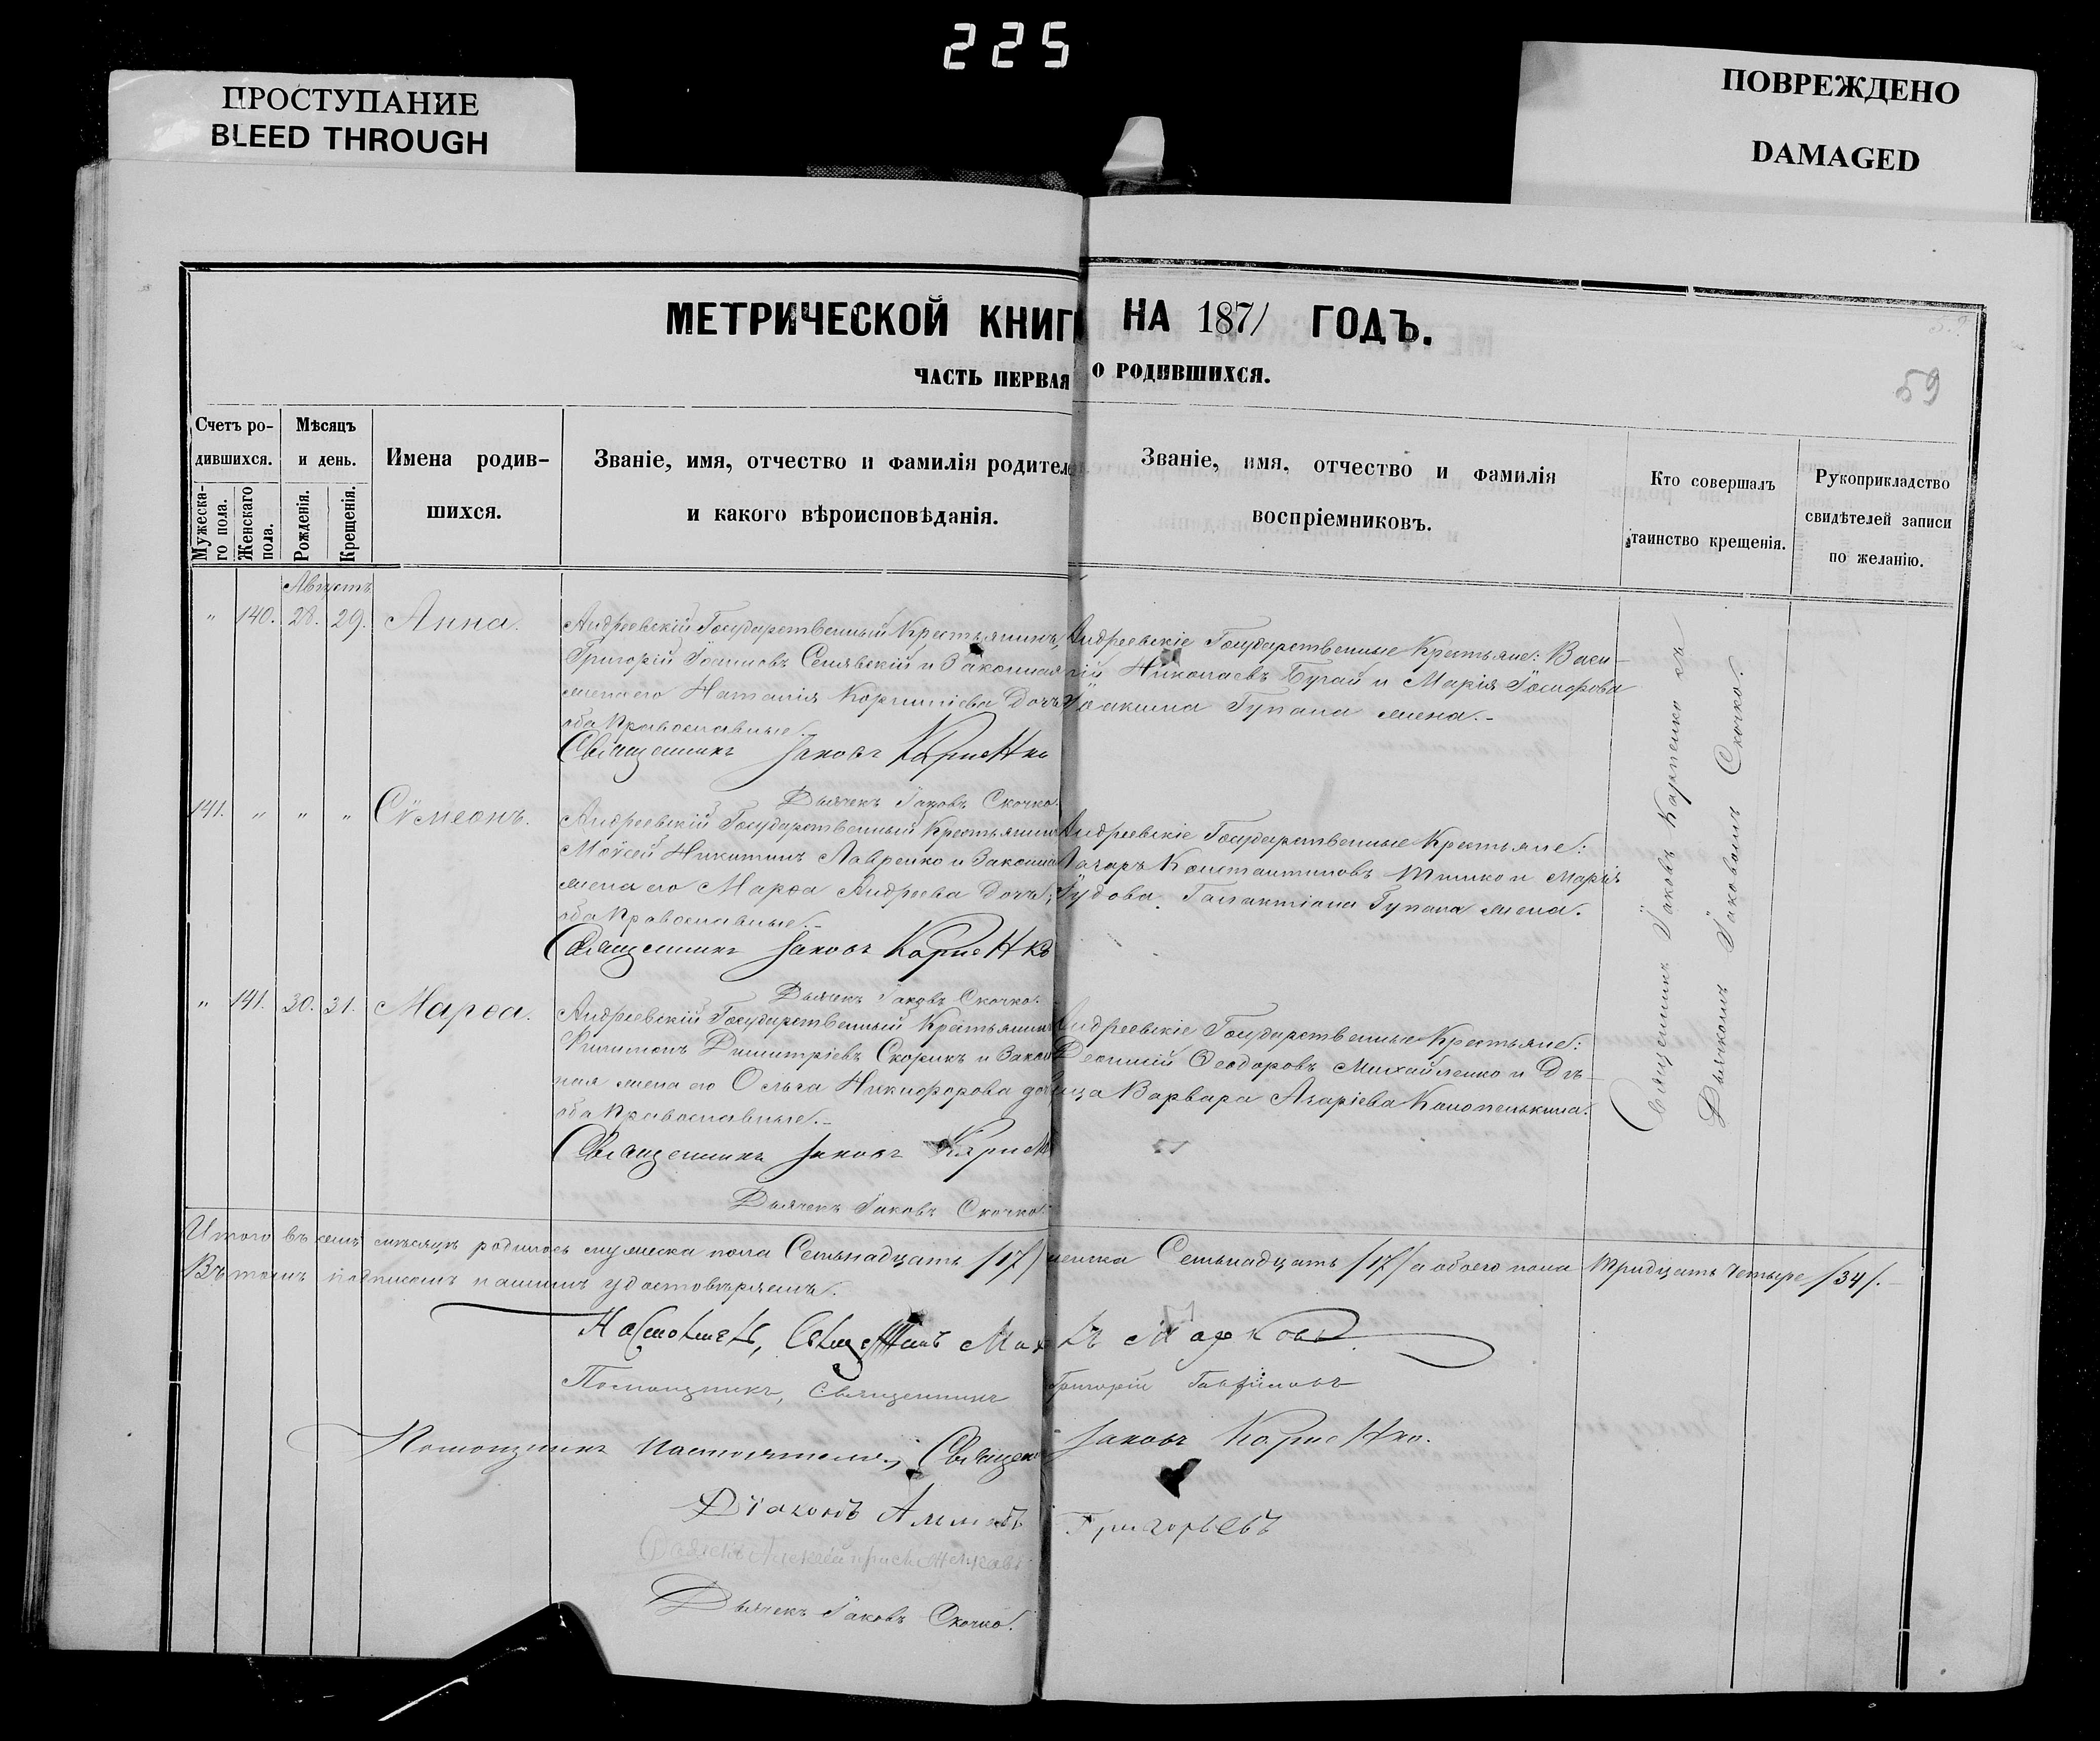 225
ПРОСТУПАНИЕ
BLEED THROUGH
ПОВРЕЖДЕНО
DAMAGED
МЕТРИЧЕСКОЙ КНИГИ НА 1871 ГОДЪ.
ЧАСТЬ ПЕРВАЯ О РОДИВШИХСЯ.
59
Счетъ ро-
дившихся.
Мужеска-
го пола.
Женскаго
пола.
Мѣсяцъ
и день.
Рожденія.
Крещенія.
Имена родив-
шихся.
Званіе, имя, отчество и фамилія родителе
и какого вѣроисповѣданія.
Званіе, имя, отчество и фамилія
воспріемниковъ.
Кто совершалъ
таинство крещенія.
Рукоприкладство
свидѣтелей записи
по желанію.
Августъ
" 140. 28. 29. Анна.
Андреевскій Государственный Крестьянинъ,
Григорій Іосифовъ Сенявскій и Законная
жена его Наталія Корниліева дочь
оба Православные.
Священникъ Іаковъ Карпенко
Дьячекъ Іаковъ Скочко.
Андреевскіе Государственные Крестьяне: Васи-
лій Николаевъ Бугай и Марія Іосифова
Іоакима Гупала жена.-
141. " " " Сѵмеонъ.
Андреевскій Государственный Крестьянинъ
Моѵсей Никитинъ Лавренко и Законная
жена его Марѳа Андреева дочь,
оба Православные.-
Священникъ Іаковъ Карпенко
Дьячекъ Іаковъ Скочко.
Андреевскіе Государственные Крестьяне:
Лазарь Константиновъ и Марія
Іудова, Галактіона Гупала жена.
" 141. 30. 31. Марѳа.
Андреевскій Государственный Крестьянинъ
Филимонъ Димитріевъ Скорикъ и Закон
ная жена его Ольга Никифорова до
оба Православные.-
Священникъ Іаковъ Карпен
Дьячекъ Іаковъ Скочко.
Андреевскіе Государственные Крестьяне:
Леонтій Ѳеодоровъ Михайленко и Дѣ-
вица Варвара Азаріева Коно­пелькина.
Священникъ Іаковъ Карпенко съ
Дьячкомъ Іаковомъ Скочко.
Итого въ семъ мѣсяцѣ родилось мужеска пола Семьнадцать /17/ женска Семьнадцать /17/ а обоего пола тридцать четыре /34/.-
Въ томъ подписомъ нашимъ удостовѣряемъ.
Настоятель, Священникъ Марковъ
Помощникъ, Священникъ Григорій Гавриловъ
Помощникъ Настоятеля, Священ Іаковъ Карпенко.
Діаконъ Григорьевъ
Дьячекъ Алексій
Дьячекъ Іаковъ Скочко.